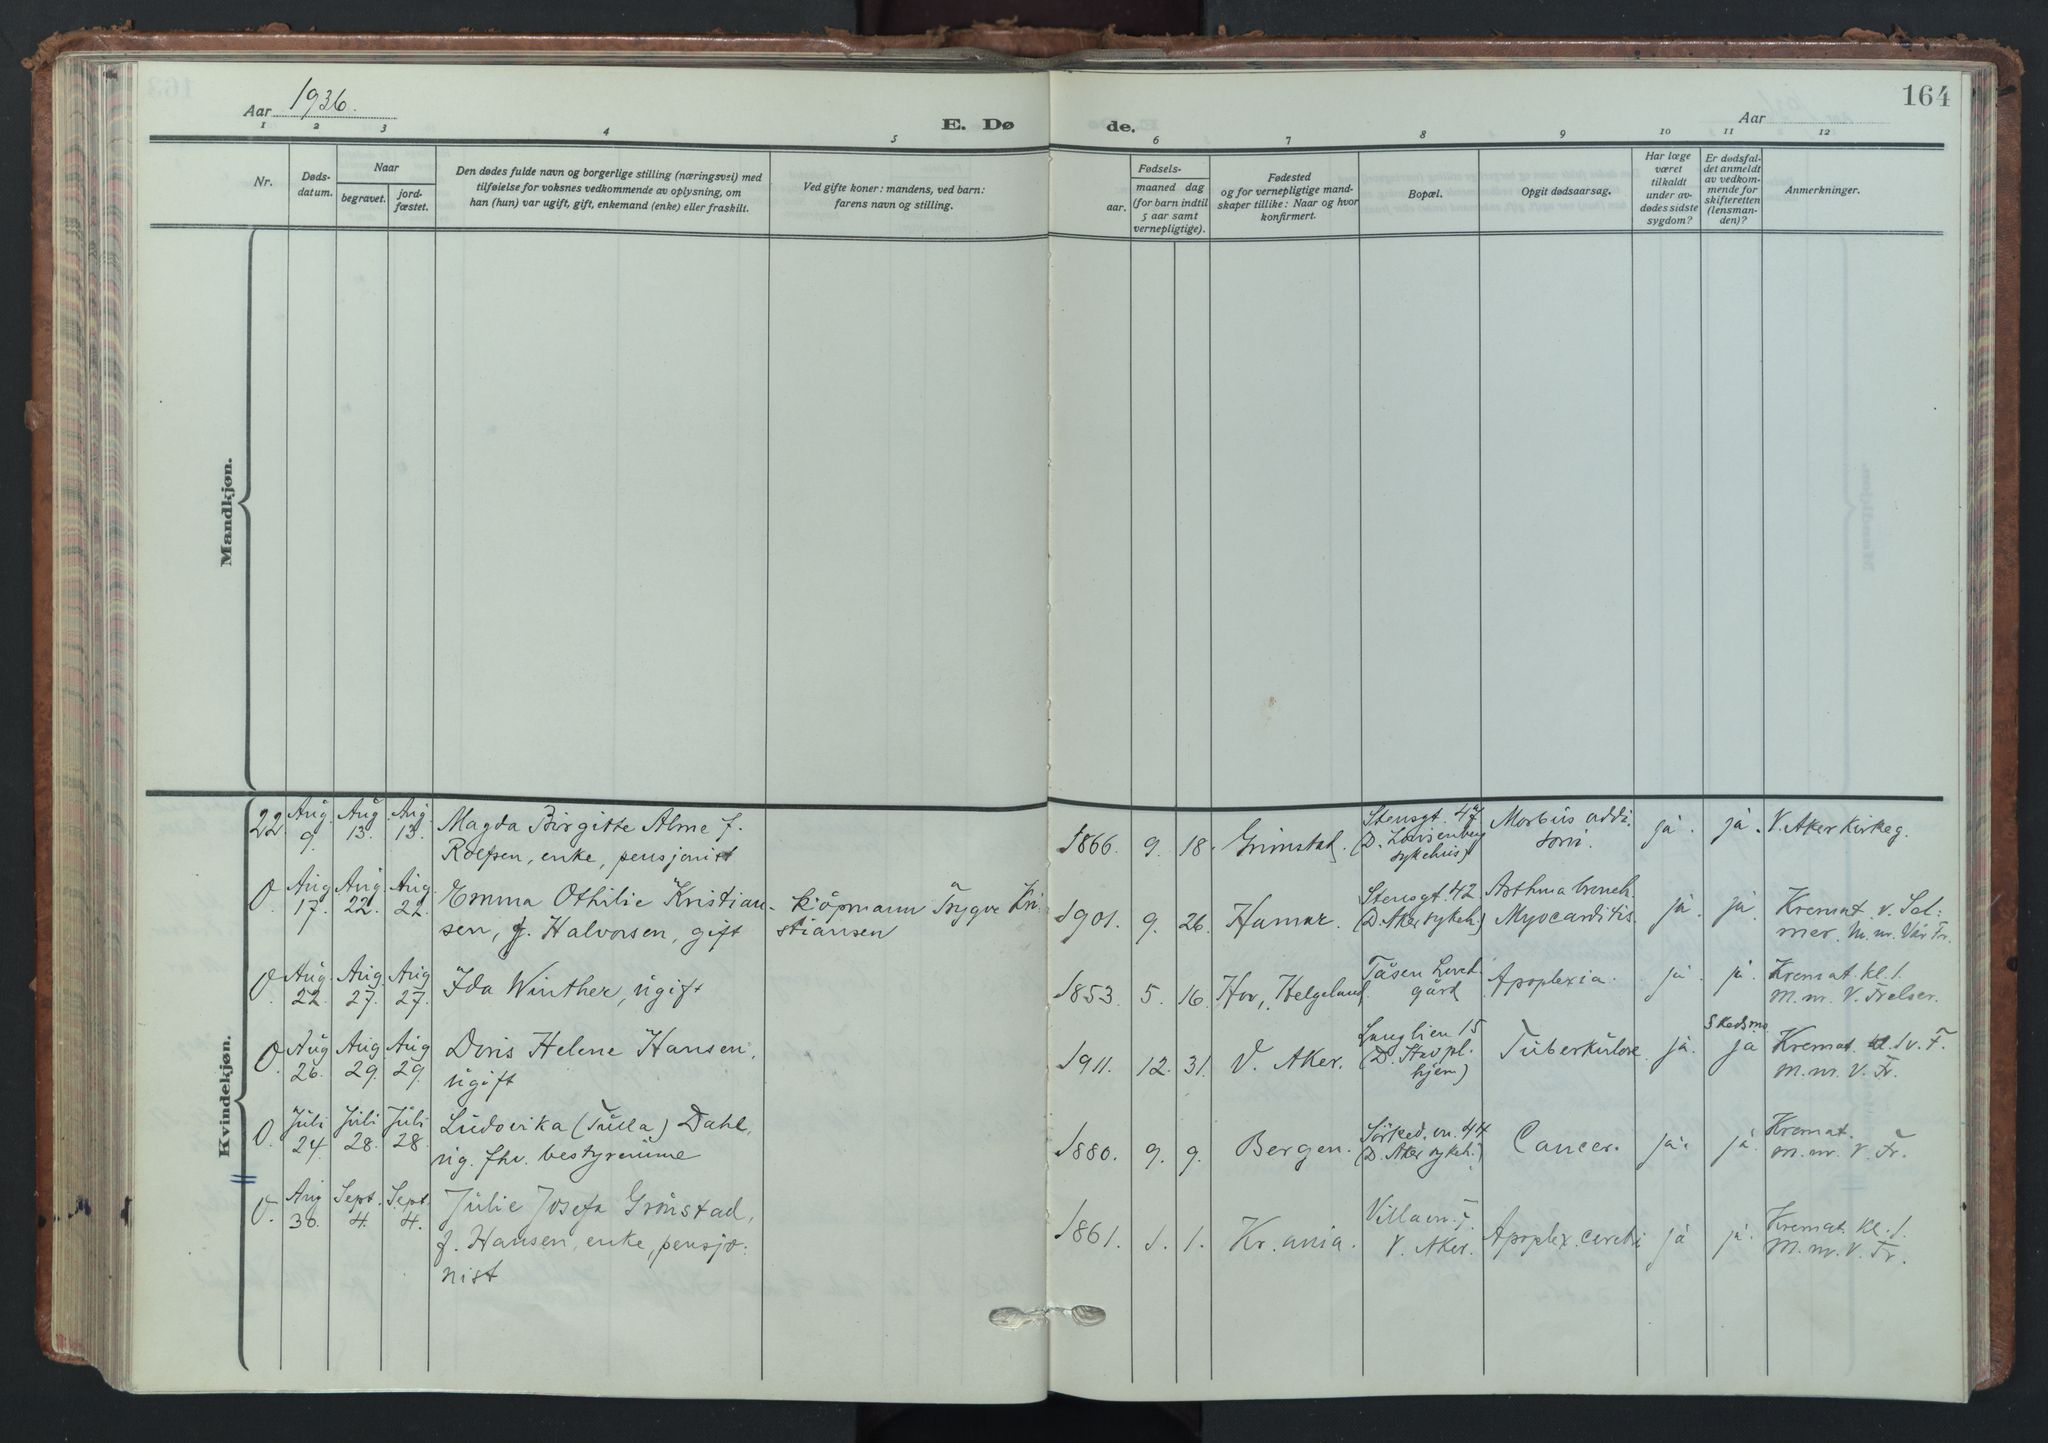 164
Aar 1936.
E. Dø
de.
Aar
1 2 3 4 5 6 7 8 9 10 11 12
Nr.
Døds-
datum.
Naar
begravet.
jord-
fæstet.
Den dødes fulde navn og borgerlige stilling (næringsvei) med
tilføielse for voksnes vedkommende av oplysning, om
han (hun) var ugift, gift, enkemand (enke) eller fraskilt.
Ved gifte koner: mandens, ved barn:
farens navn og stilling.
Fødsels-
aar.
maaned dag
(for barn indtil
5 aar samt
vernepligtige).
Fødested
og for vernepligtige mand-
skaper tillike: Naar og hvor
konfirmert.
Bopæl.
Opgit dødsaarsag.
Har læge
været
tilkaldt
under av-
dødes sidste
sygdom?
Er dødsfal-
det anmeldt
av vedkom-
mende for
skifteretten
(lensman-
den)?
Anmerkninger.
Mandkjøn.
Kvindekjøn.
22 Aug. 9. Aug 13. Aug. 13. Magda Birgitte Alme f.
Roefsen, enke, pensjonist
1866. 9. 18. Grimstad.
Stensgt. 47
(D. Lovisenberg
sykehus)
Morbus addi-
soni.
ja. ja. V. Aker kirkeg.
O. Aug 17. Aug. 22. Aug. 22. Emma Othilie Kristian-
sen, f. Halvorsen, gift
Kjöpmann Trygve Kri-
stiansen
1901. 9. 26. Hamar.
Stensgt. 42.
(D. Aker sykeh.)
Asthma bronch
Myocarditis.
ja. ja. Kremat. v. Sel-
mer. M. nr. Vår Fr.
O. Aug. 22. Aug 27. Aug 27. Ida Winther, ugift
1853. 5. 16. Hov, Helgeland.
Tåsen hoved-
gård
Apoplexia.
ja. ja. Kremat. kl. 1.
M. nr. V. Frelser.
O. Aug 26. Aug 29. Aug 29. Doris Helene Hansen,
ugift
1911. 12. 31. V. Aker.
Langlien 15
(D. Stav pl.
hjem)
Tuberkulose
ja. Skedsmo
ja Kremat. kl. 1 v. F.
M. nr. V. Fr.
O. Juli 24. Juli 28. Juli 28. Ludovika (Tulla) Dahl,
ug. fhv. bestyrerinne
1880. 9. 9. Bergen.
Sörked. vn. 44
(D. Aker sykeh.)
Cancer.
ja. ja. Kremat.
M. nr. V. Fr.
O. Aug 30. Sept. 4. Sept. 4. Julie Josefa Grönstad,
f. Hansen, enke, pensjo-
nist
1861. 1. 1. Kr.ania.
Villavn. 7.
V. Aker.
Apoplex. cerebri
ja ja. Kremat. kl. 1.
M. nr. V. Fr.